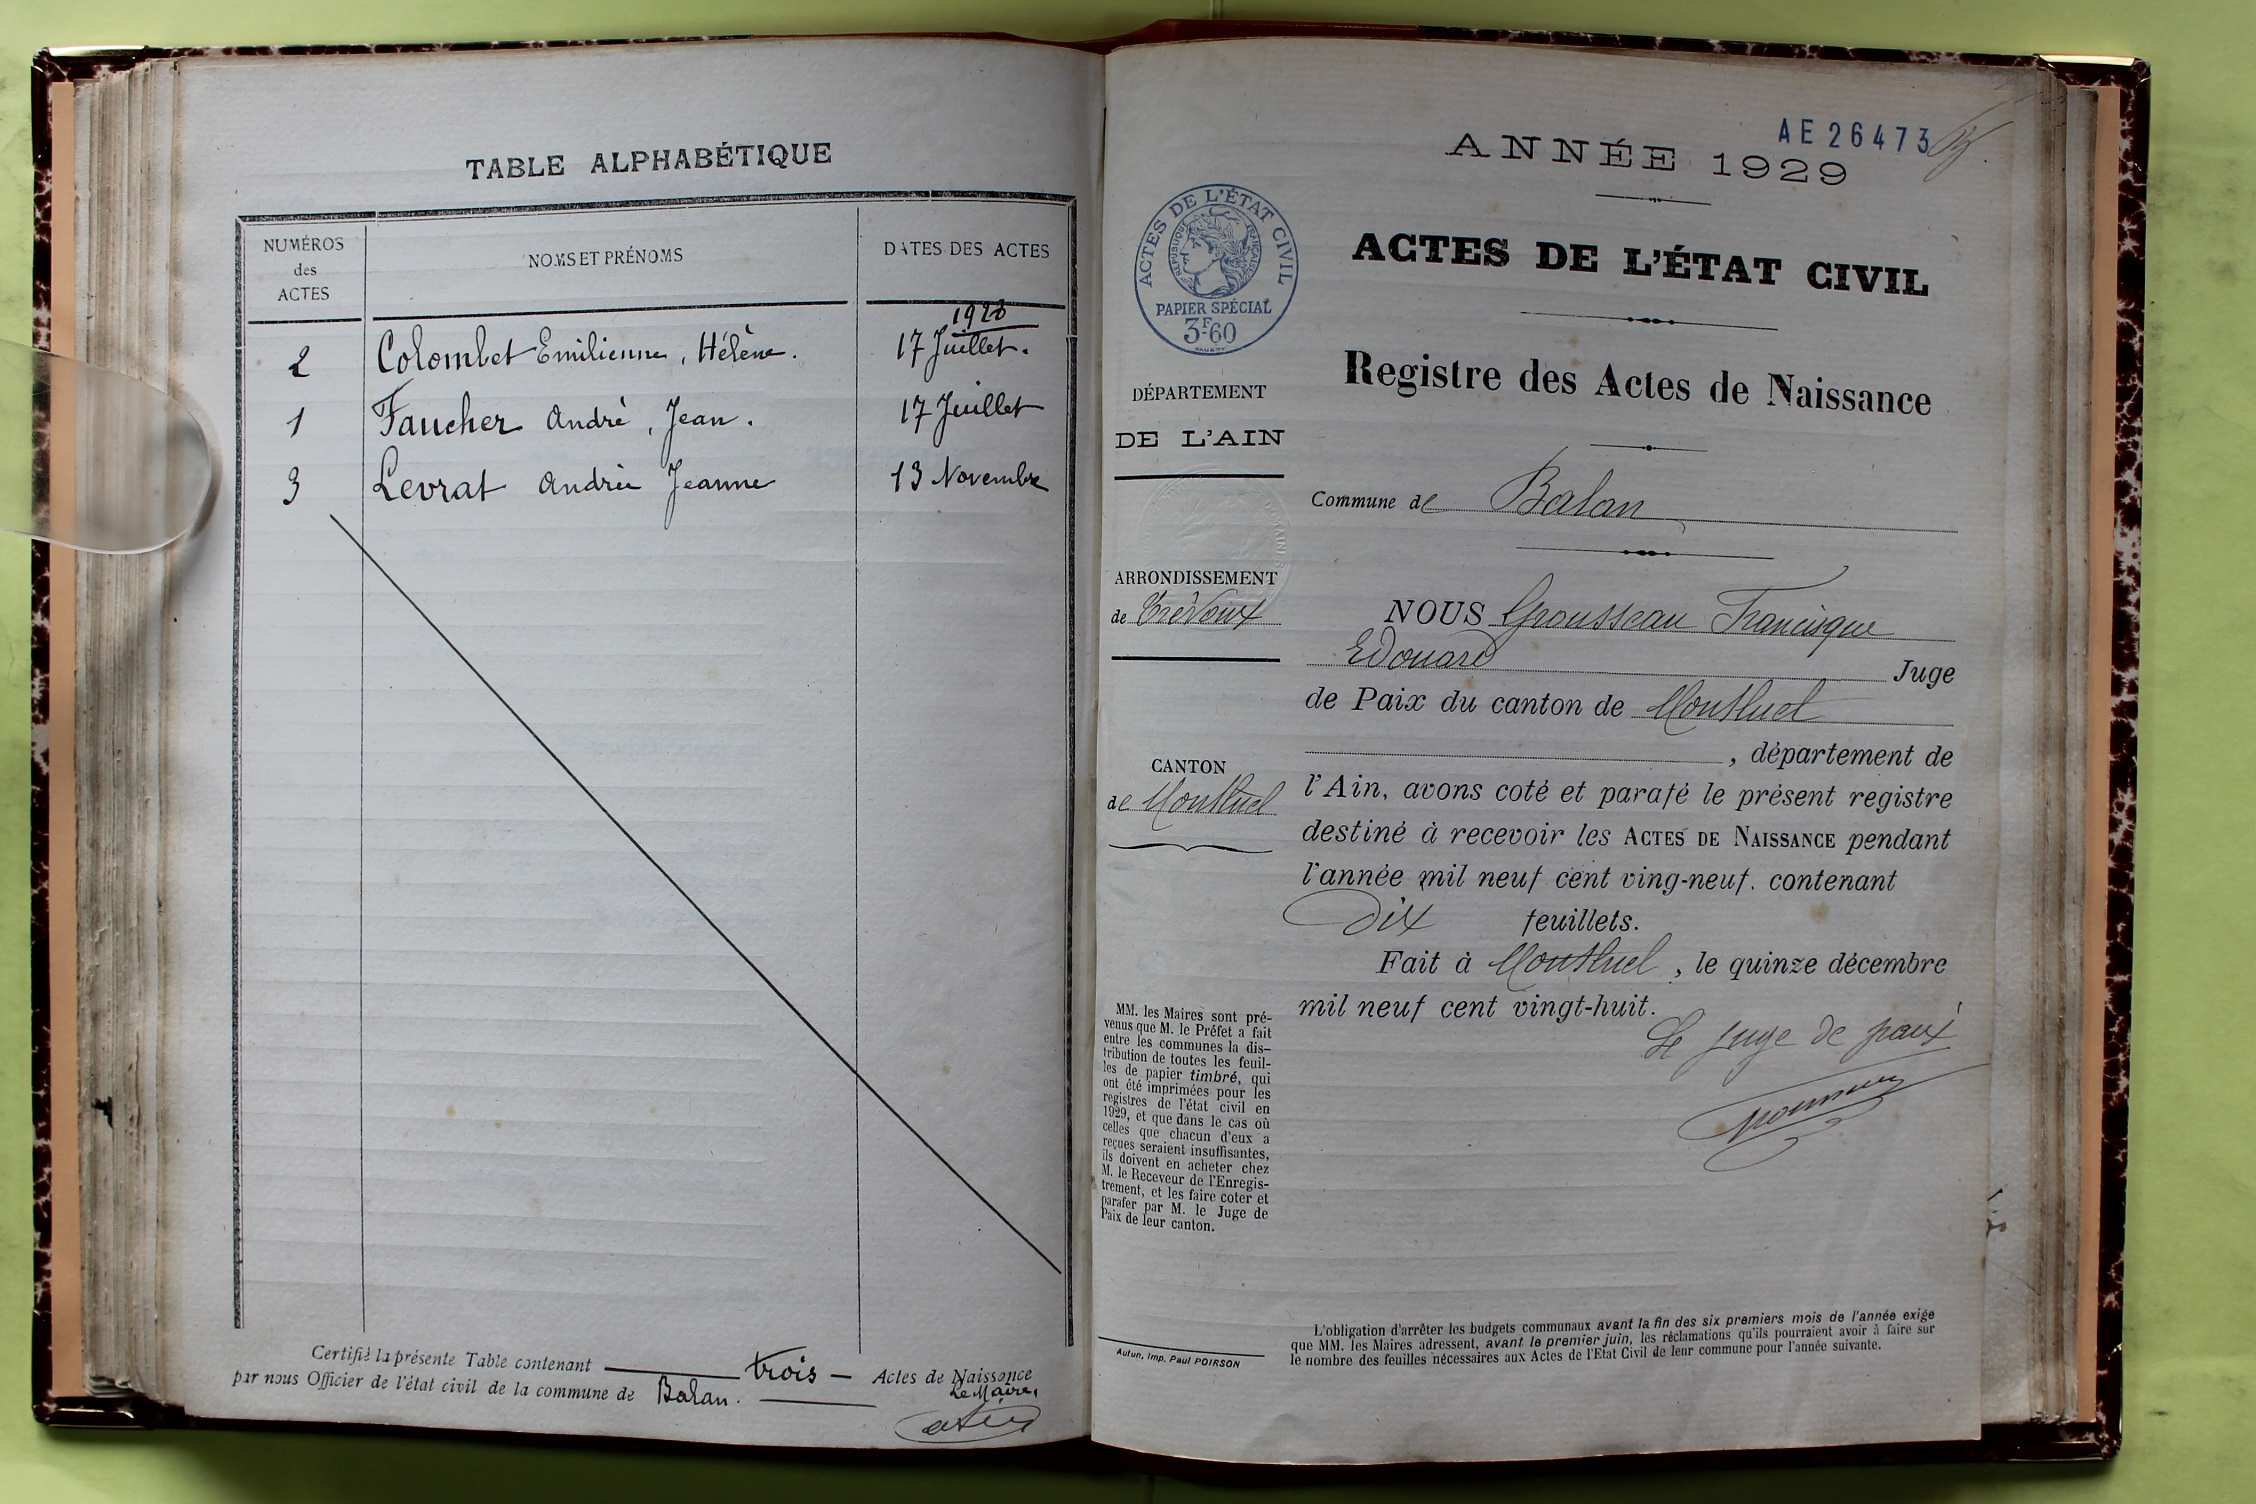 TABLE ALPHABÉTIQUE
NUMÉROS
des
ACTES
NOMS ET PRÉNOMS
DATES DES ACTES
1928
2 Colombet Emilienne, Hélène. 17 Juillet.
1 Faucher André, Jean. 17 Juillet
3 Levrat Andrée Jeanne 13 Novembre
Certifié la présente Table contenant trois — Actes de Naissance
par nous Officier de l'état civil de la commune de Balan.
Le Maire,
AE 26473
ANNÉE 1929
ACTES DE L'ÉTAT CIVIL
RÉPUBLIQUE FRANÇAISE
PAPIER SPÉCIAL
3F60
ACTES DE L'ÉTAT CIVIL
Registre des Actes de Naissance
DÉPARTEMENT
DE L'AIN
Commune de Balan
ARRONDISSEMENT
de Trévoux
CANTON
de Montluel
NOUS Grousseau Francisque
Edouard Juge
de Paix du canton de Montluel
, département de
l'Ain, avons coté et parafé le présent registre
destiné à recevoir les ACTES DE NAISSANCE pendant
l'année mil neuf cent ving-neuf. contenant
Dix feuillets.
Fait à Montluel, le quinze décembre
mil neuf cent vingt-huit.
Le juge de paix
MM. les Maires sont pré-
venus que M. le Préfet a fait
entre les communes la dis-
tribution de toutes les feuil-
les de papier timbré, qui
ont été imprimées pour les
registres de l'état civil en
1929, et que dans le cas où
celles que chacun d'eux a
reçues seraient insuffisantes,
ils doivent en acheter chez
M. le Receveur de l'Enregis-
trement, et les faire coter et
parafer par M. le Juge de
Paix de leur canton.
Autun, Imp. Paul POIRSON
L'obligation d'arrêter les budgets communaux avant la fin des six premiers mois de l'année exige
que MM. les Maires adressent, avant le premier juin, les réclamations qu'ils pourraient avoir à faire sur
le nombre des feuilles nécessaires aux Actes de l'Etat Civil de leur commune pour l'année suivante.